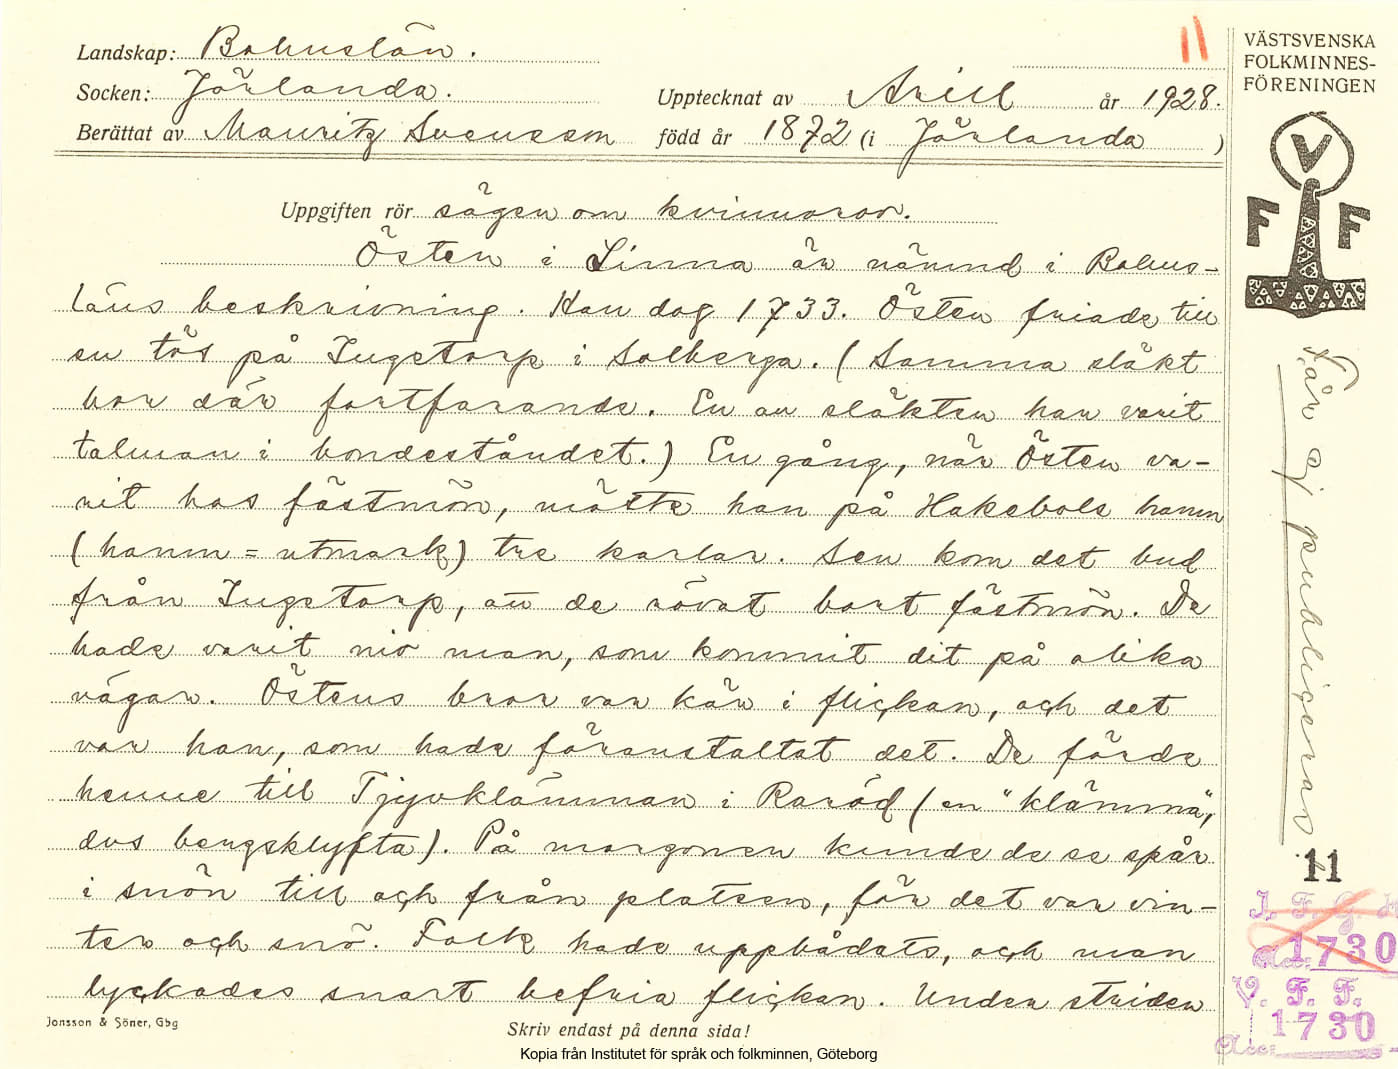 Landskap: Bohuslän.
Socken: Jörlanda.
Upptecknat av Arill år 1928.
Berättat av Mauritz Svensson född år 1872 (i Jörlanda )
11
VÄSTSVENSKA
FOLKMINNES-
FÖRENINGEN
V
F F
Uppgiften rör sägen om kvinnorov.
Östen i Linna är nämnd i Bohus-
läns beskrivning. Han dog 1733. Östen friade till
en tös på Ingetorp i Solberga. (Samma släkt
bor där fortfarande. En av släkten har varit
talman i bondeståndet.) En gång, när Östen va-
rit hos fästmön, mötte han på Hakebols hamn
(hamn = utmark) tre karlar. Sen kom det bud
från Ingetorp, att de rövat bort fästmön. De
hade varit nio man, som kommit dit på olika
vägar. Östens bror var kär i flickan, och det
var han, som hade föranstaltat det. De förde
henne till Tjyvklämman i Raröd (en "klämma",
dvs bergsklyfta). På morgonen kunde de se spår
i snön till och från platsen, för det var vin-
ter och snö. Folk hade uppbådats, och man
lyckades snart befria flickan. Under striden
Får ej publiceras
11
I. F. G. H
Acc: 1730
V. F. F.
1730
Acc:
Jonsson & Söner, Gbg
Skriv endast på denna sida!
Kopia från Institutet för språk och folkminnen, Göteborg